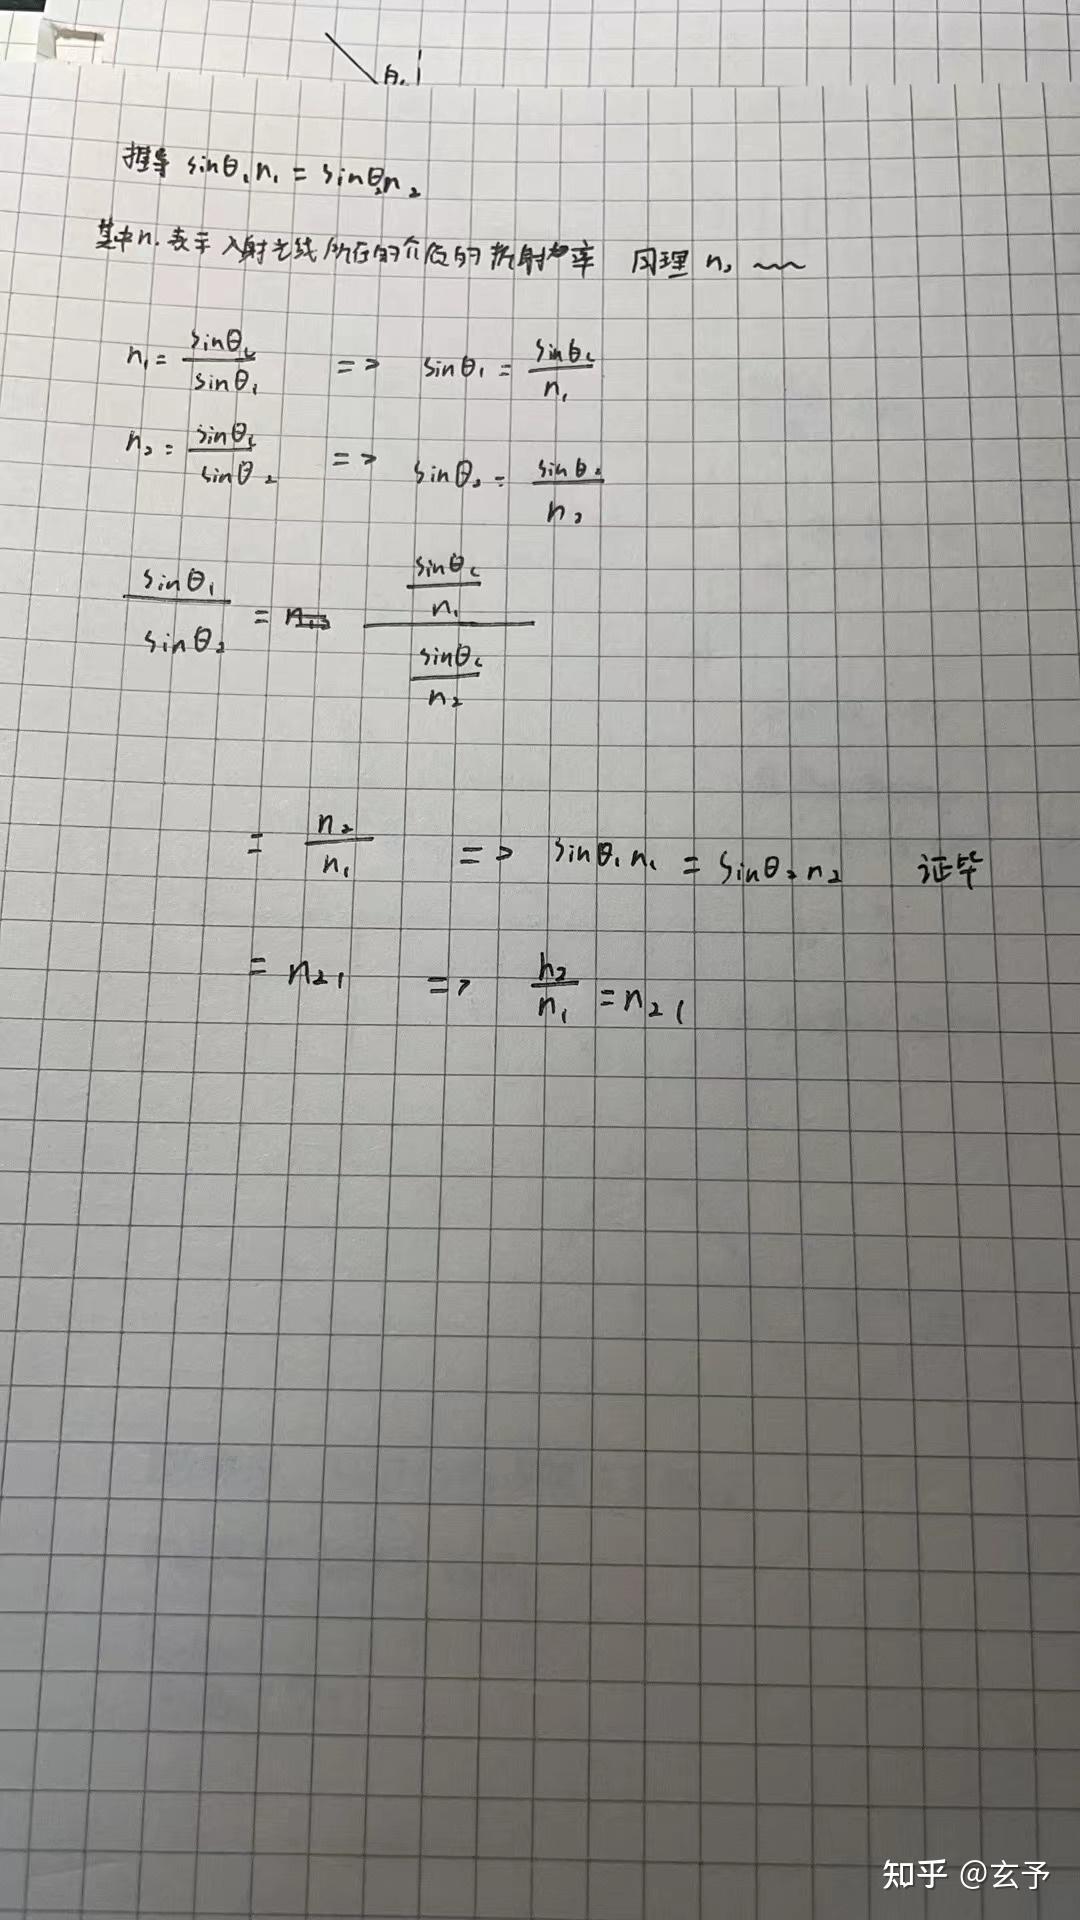 θ₁
推导 sinθ₁n₁ = sinθ₂n₂
其中n₁表示入射光线所在的介质的折射率 同理 n₂ ~~~
n₁ = sinθc/sinθ₁ => sinθ₁ = sinθc/n₁
n₂ = sinθc/sinθ₂ => sinθ₂ = sinθc/n₂
sinθ₁/sinθ₂ = (sinθc/n₁)/(sinθc/n₂)
= n₂/n₁ => sinθ₁n₁ = sinθ₂n₂ 证毕
= n₂₁ => n₂/n₁ = n₂₁
知乎 @玄予